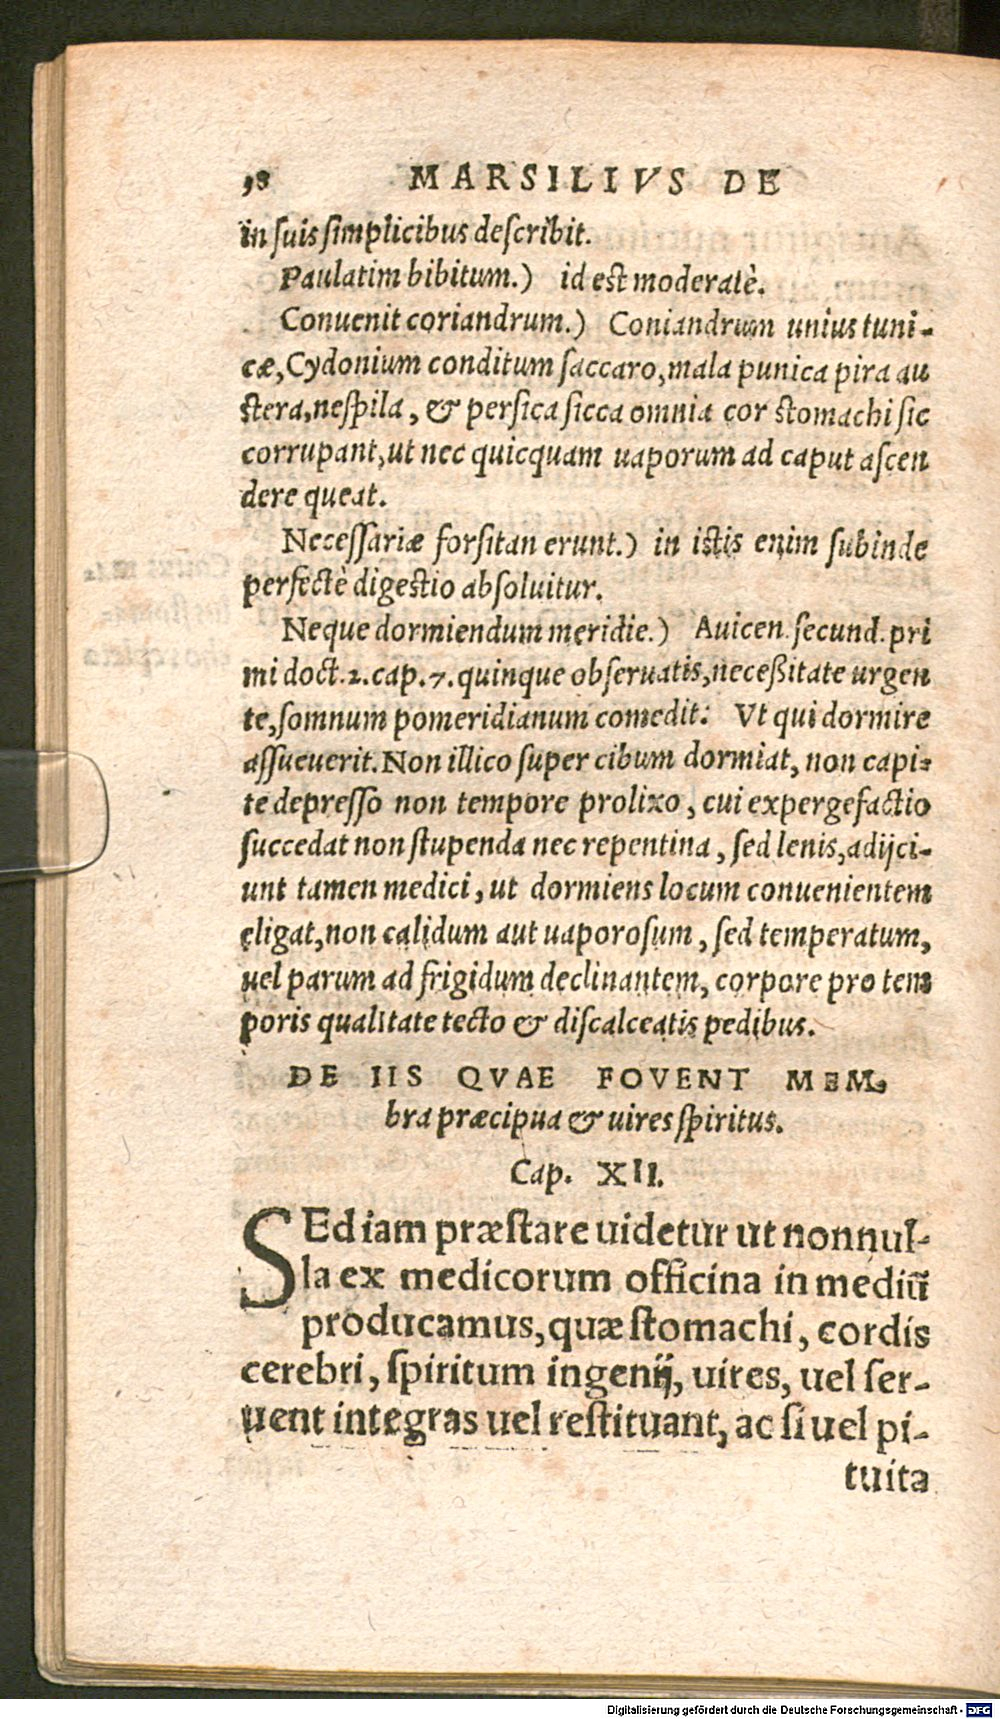 58 MARSILIVS DE
in ſuis ſimplicibus deſcribit.
Paulatim bibitum.) id eſt moderatè.
Conuenit coriandrum.) Coniandrum unius tuni-
cæ, Cydonium conditum ſaccaro, mala punica pira au
ſtera, neſpila, & perſica ſicca omnia cor ſtomachi ſic
corrupant, ut nec quicquam uaporum ad caput aſcen
dere queat.
Neceſſariæ forſitan erunt.) in iſtis enim ſubinde
perfectè digeſtio abſoluitur.
Neque dormiendum meridie.) Auicen. ſecund. pri
mi doct. 2. cap. 7. quinque obſeruatis, neceßitate urgen
te, ſomnum pomeridianum comedit: Vt qui dormire
aſſueuerit. Non illico ſuper cibum dormiat, non capi-
te depreſſo non tempore prolixo, cui expergefactio
ſuccedat non ſtupenda nec repentina, ſed lenis, adijci-
unt tamen medici, ut dormiens locum conuenientem
eligat, non calidum aut uaporoſum, ſed temperatum,
uel parum ad frigidum declinantem, corpore pro tem
poris qualitate tecto & diſcalceatis pedibus.
DE IIS QVAE FOVENT MEM-
bra præcipua & uires ſpiritus.
Cap. XII.
SEd iam præſtare uidetur ut nonnul-
la ex medicorum officina in mediũ
producamus, quæ ſtomachi, cordis
cerebri, ſpiritum ingenij, uires, uel ſer-
uent integras uel reſtituant, ac ſi uel pi-
tuita
Digitalisierung gefördert durch die Deutsche Forschungsgemeinschaft - DFG